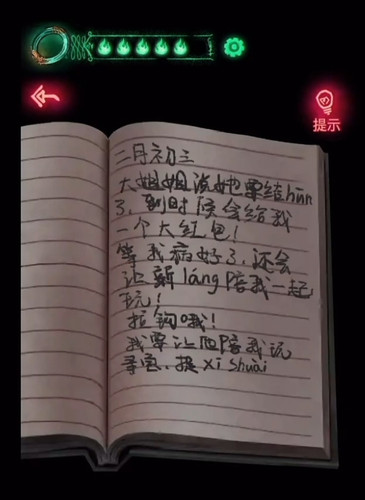 提示
二月初三
大姐姐说她要结hūn
了，到时候会给我
一个大红包！
等我病好了，还会
让新láng陪我一起
玩！
拉钩哦！
我要让他陪我玩
寻宝、捉xī shuài